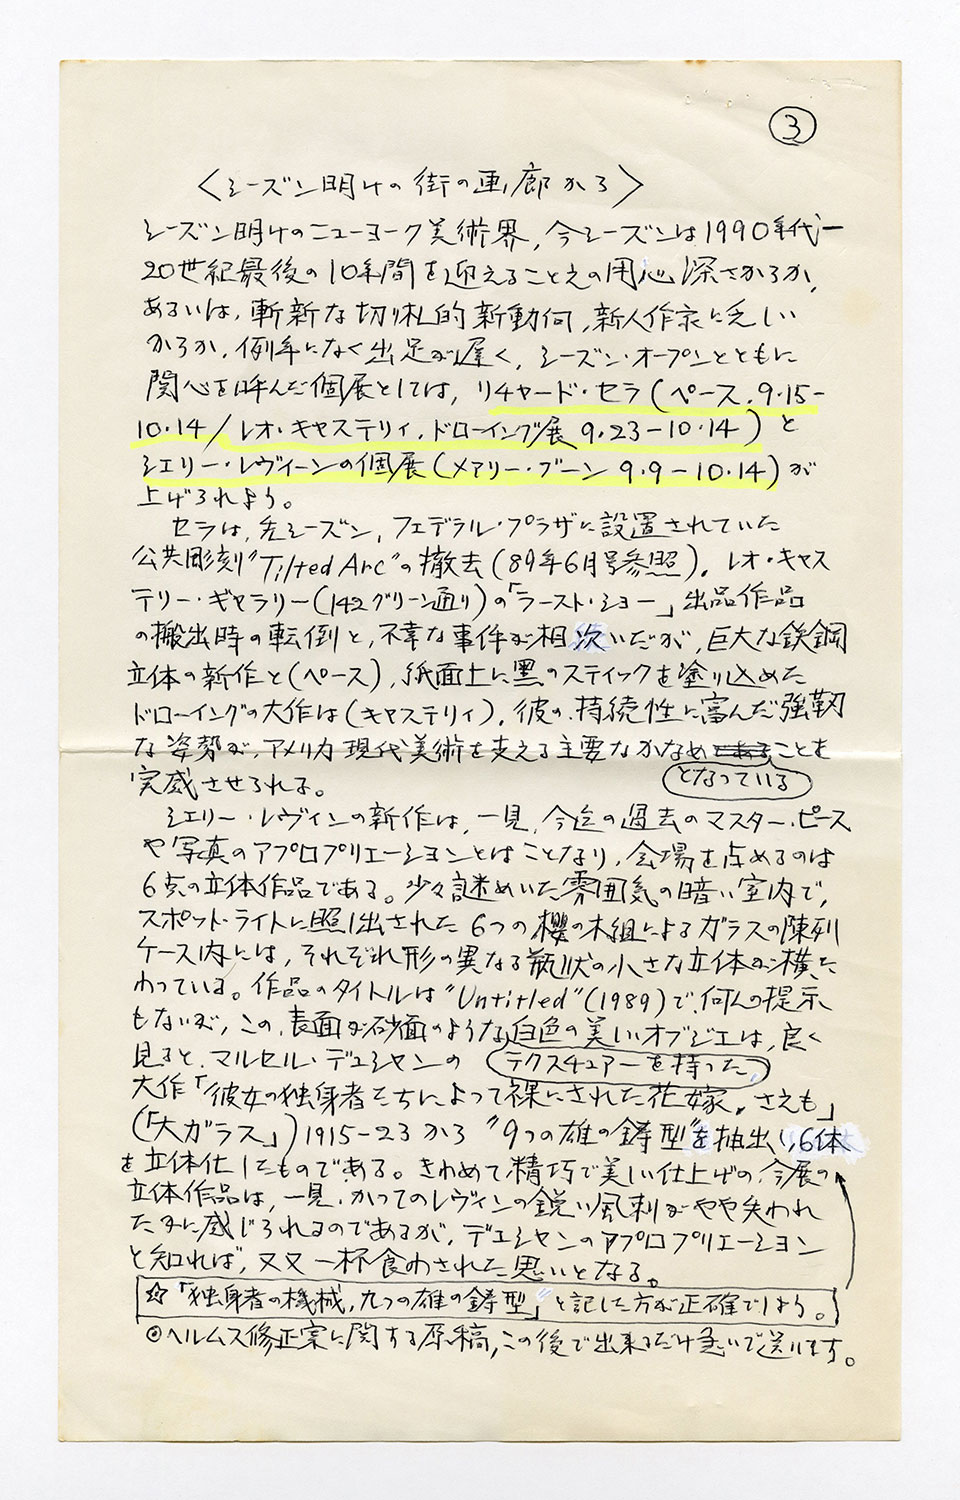 3
〈シーズン明けの街の画廊から〉
シーズン明けのニューヨーク美術界、今シーズンは1990年代ー
20世紀最後の10年間を迎えることえの用心深さからか、
あるいは、斬新な切り札的新動向、新人作家に乏しい
からか、例年になく出足が遅く、シーズン・オープンとともに
関心を呼んだ個展としては、リチャード・セラ(ペース、9・15-
10・14/レオ・キャステリィ、ドローイング展 9・23-10・14)と
シェリー・レヴィーンの個展(メアリー・ブーン 9・9-10・14)が
上げられよう。
セラは、先シーズン、フェデラル・プラザに設置されていた
公共彫刻"Tilted Arc"の撤去(89年6月号参照)。レオ・キャス
テリー・ギャラリー(142グリーン通り)の「ラースト・ショー」出品作品
の搬出時の転倒と、不幸な事件が相次いだが、巨大な鉄鋼
立体の新作と(ペース)、紙面上に黒のスティックを塗り込めた
ドローイングの大作は(キャステリィ)、彼の、持続性に富んだ強靭
な姿勢が、アメリカ現代美術を支える主要なかなめであることを
となっている
実感させられる。
シェリー・レヴィンの新作は、一見、今迄の過去のマスター・ピース
や写真のアプロプリエーションとはことなり、会場を占めるのは
6点の立体作品である。少々謎めいた雰囲気の暗い室内で、
スポット・ライトに照し出された6つの櫻の木組によるガラスの陳列
ケース内には、それぞれ形の異なる瓶状の小さな立体が横た
わっている。作品のタイトルは"Untitled"(1989)で、何んの提示
もないが、この、表面が砂面のような白色の美しいオブジェは、良く
見ると、マルセル・デュシャンの
テクスチュアーを持った、
大作「彼女の独身者たちによって裸にされた花嫁、さえも」
(「大ガラス」)1915-23から"9つの雄の鋳型"を抽出し、6体
を立体化したものである。きわめて精巧で美しい仕上げの、今展の
立体作品は、一見、かってのレヴィンの鋭い風刺がやや失われ
たかに感じられるのであるが、デュシャンのアプロプリエーション
と知れば、又又一杯食わされた思いとなる。
☆「独身者の機械、九つの雄の鋳型」と記した方が正確でしょう。
◎ヘルムス修正案に関する原稿、この後で出来るだけ急いで送ります。